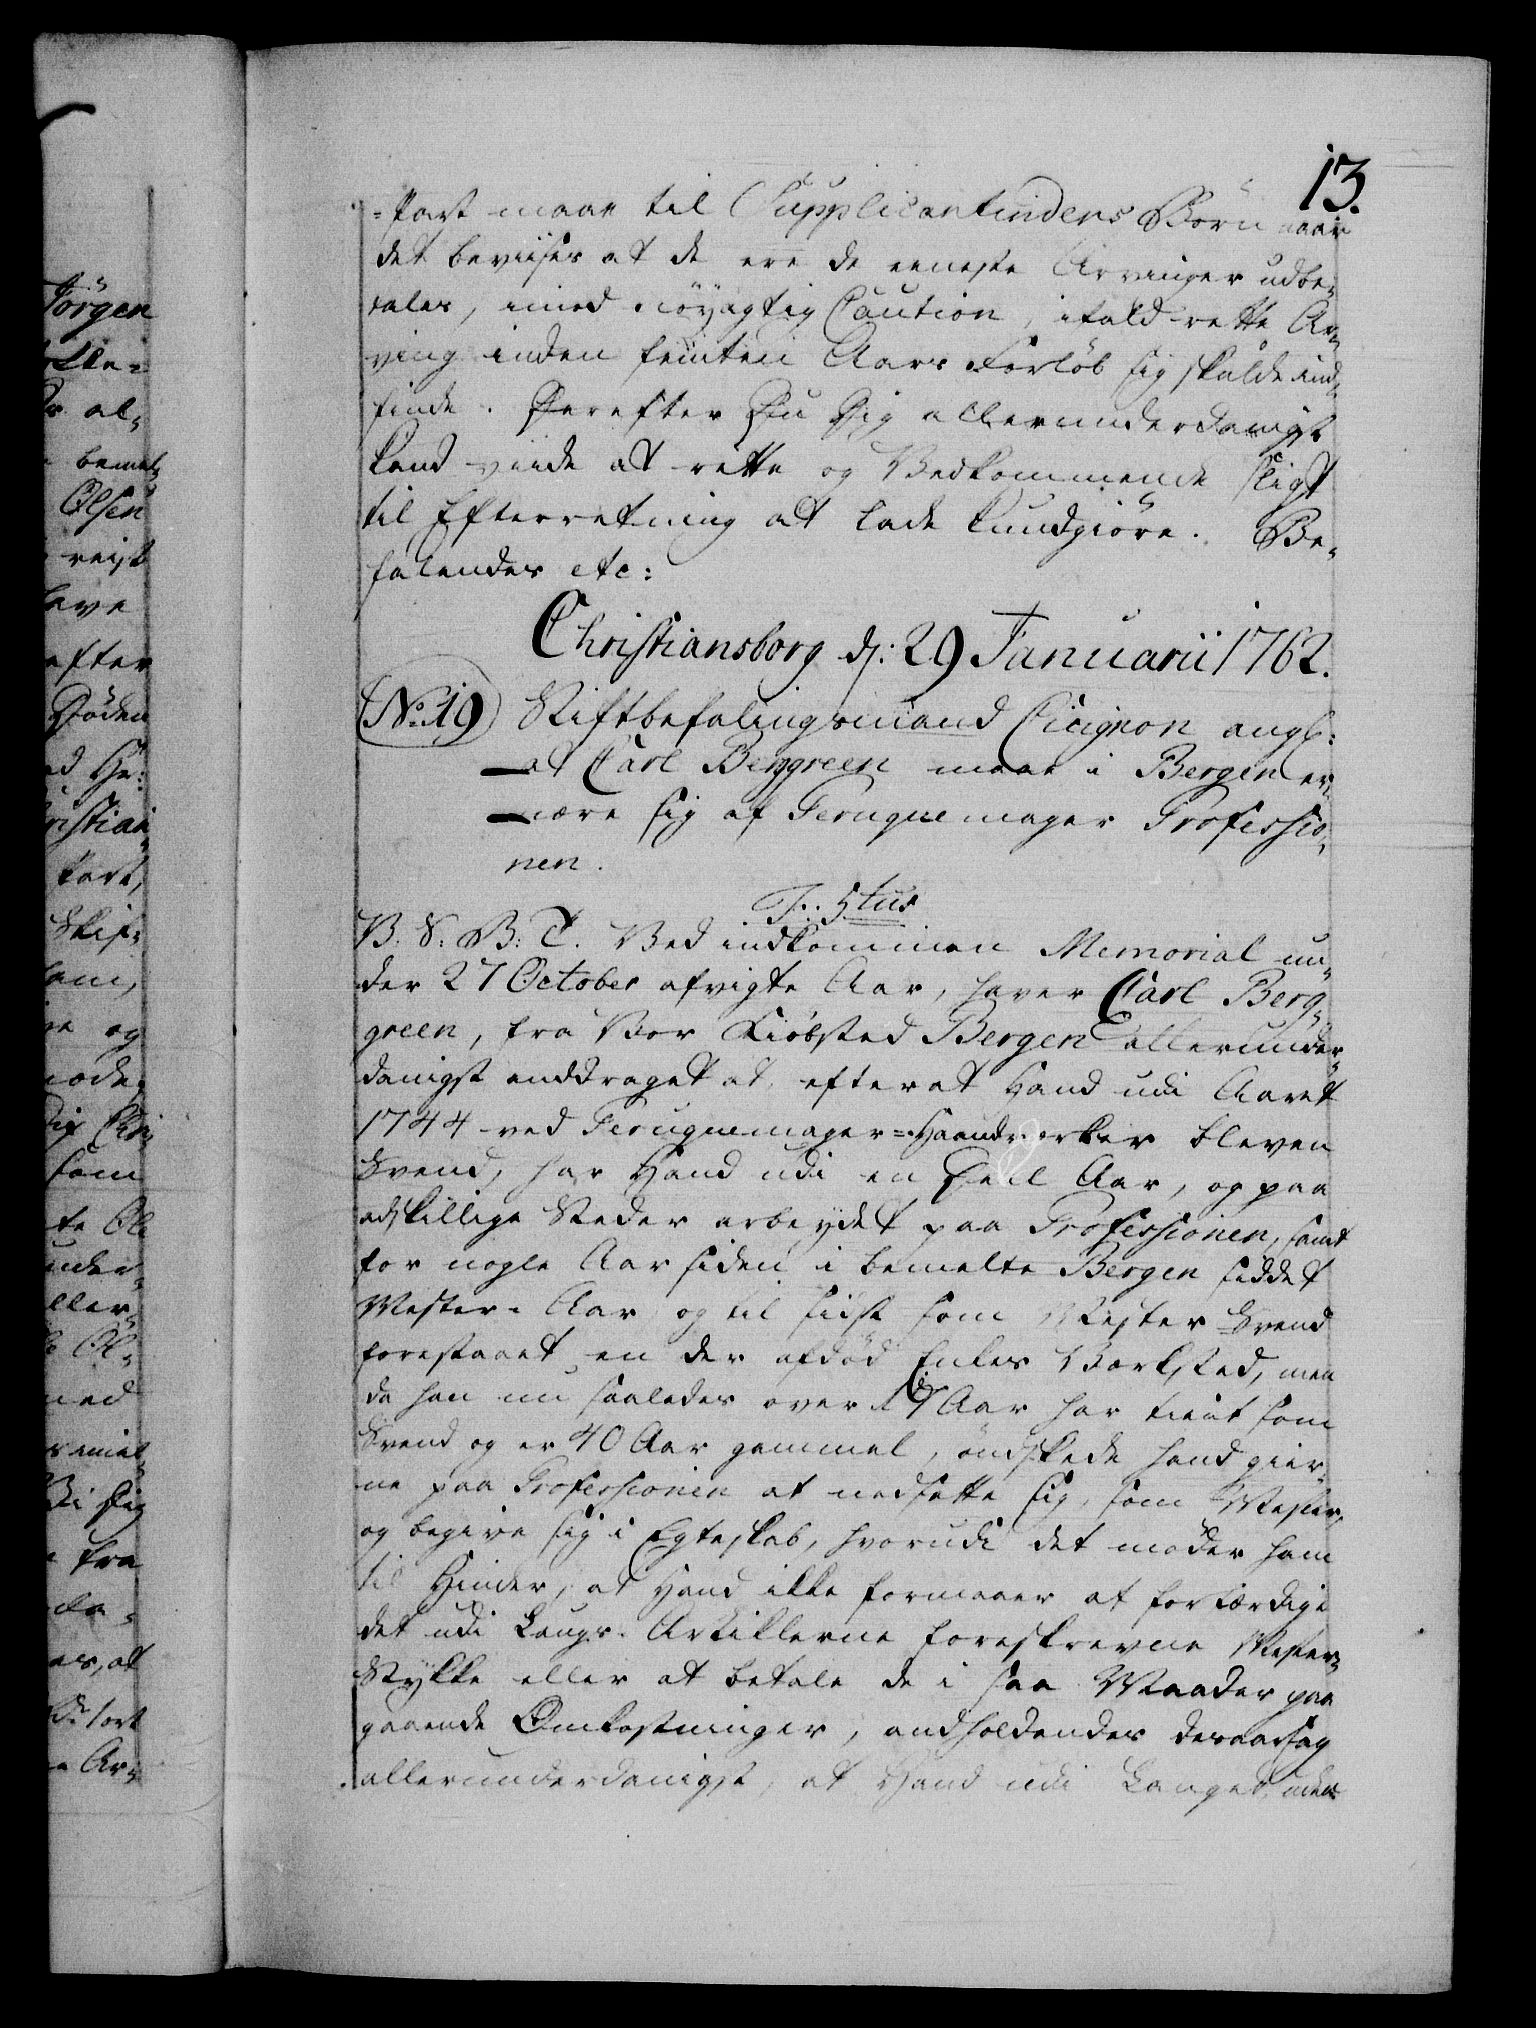 13.
=Part maae til Supplicantindens Börn naar
det beviises at de ere de eeneste Arvinger udbe-
tales, imod nöyagtig Caution, ifald rette Ar-
ving inden femten Aars Forlöb sig skulde ind-
finde. Derefter Du Dig allerunderdanigst
kand viide at rette og Vedkommende sligt
til Efterretning at lade kundgiöre. Be-
falendes etc:
Christiansborg d: 29 Januarii 1762.
No: 19 Stiftbefalingsmand Cicignon angl:
at Carl Berggreen maae i Bergen er-
nære sig af Peruquemager Professio-
nen.
F: 5tus
V: S: B: T. Ved indkommen Memorial un-
der 27 October afvigte Aar, haver Carl Berg-
green, fra Vor Kiöbsted Bergen allerunder-
danigst anddraget at, efterat Hand udi Aaret
1744 ved Peruquemager=Haandværket bleven
Svend, har Hand udi en Deel Aar, og paa
adskillige Steder arbeydet paa Professionen, samt
for nogle Aar siden i bemelte Bergen siddet
Mester-Aar og til sidst som Mester Svend
forestaaet en der afdöd Enkes Værksted, men
da han nu saaledes over 17 Aar har tient som
Svend og er 40 Aar gammel, öndskede hand gier-
ne paa Professionen at nedsette sig, som Mester,
og begive sig i Egteskab, hvorudi det möder ham
til Hinder, at Hand ikke formaaer at forfærdige
det udi Laugs-Artiklerne foreskrevne Mester-
Stykke eller at betale de i saa Maader paa
gaaende Omkostninger, andholdendes desaarsag
allerunderdanigst, at Hand udi Lauget, uden
Jörgen
al-
Olsen
reist
have
efter
Döden
Christian-
Skif-
ham,
og
som
under-
aller-
med
fra
at
Ar-